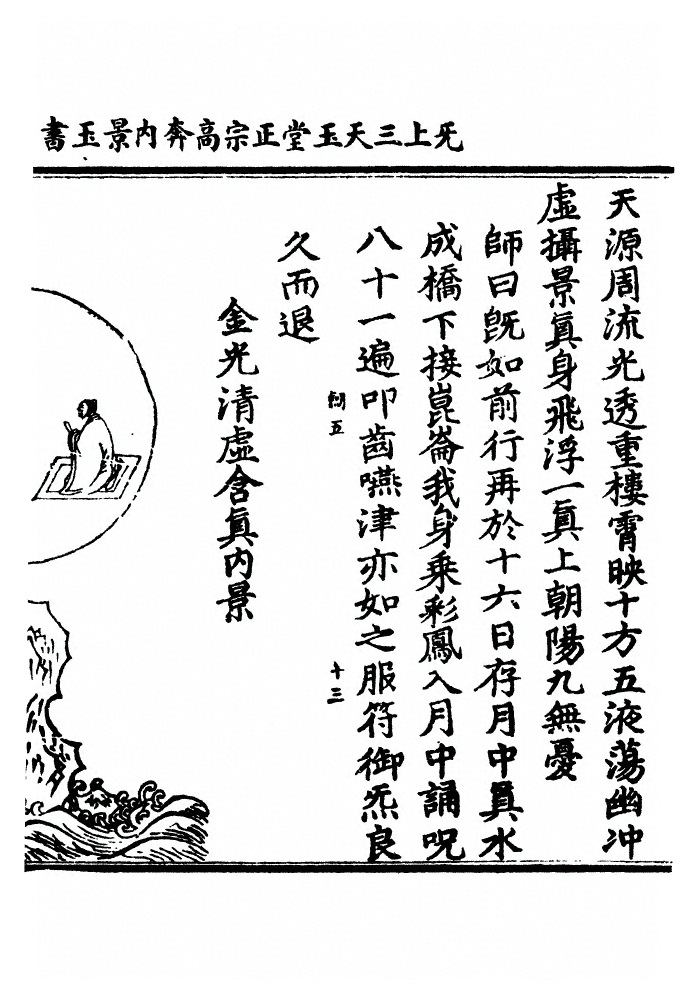 旡上三天玉堂正宗高奔內景玉書
天源周流光透重樓霄映十方五液蕩幽冲
虛攝景真身飛浮一真上朝陽九無憂
師曰旣如前行再於十六日存月中真水
成橋下接崑崙我身乘彩鳳入月中誦呪
八十一遍叩齒嚥津亦如之服符御炁良
久而退
五
十三
金光清虛含真內景